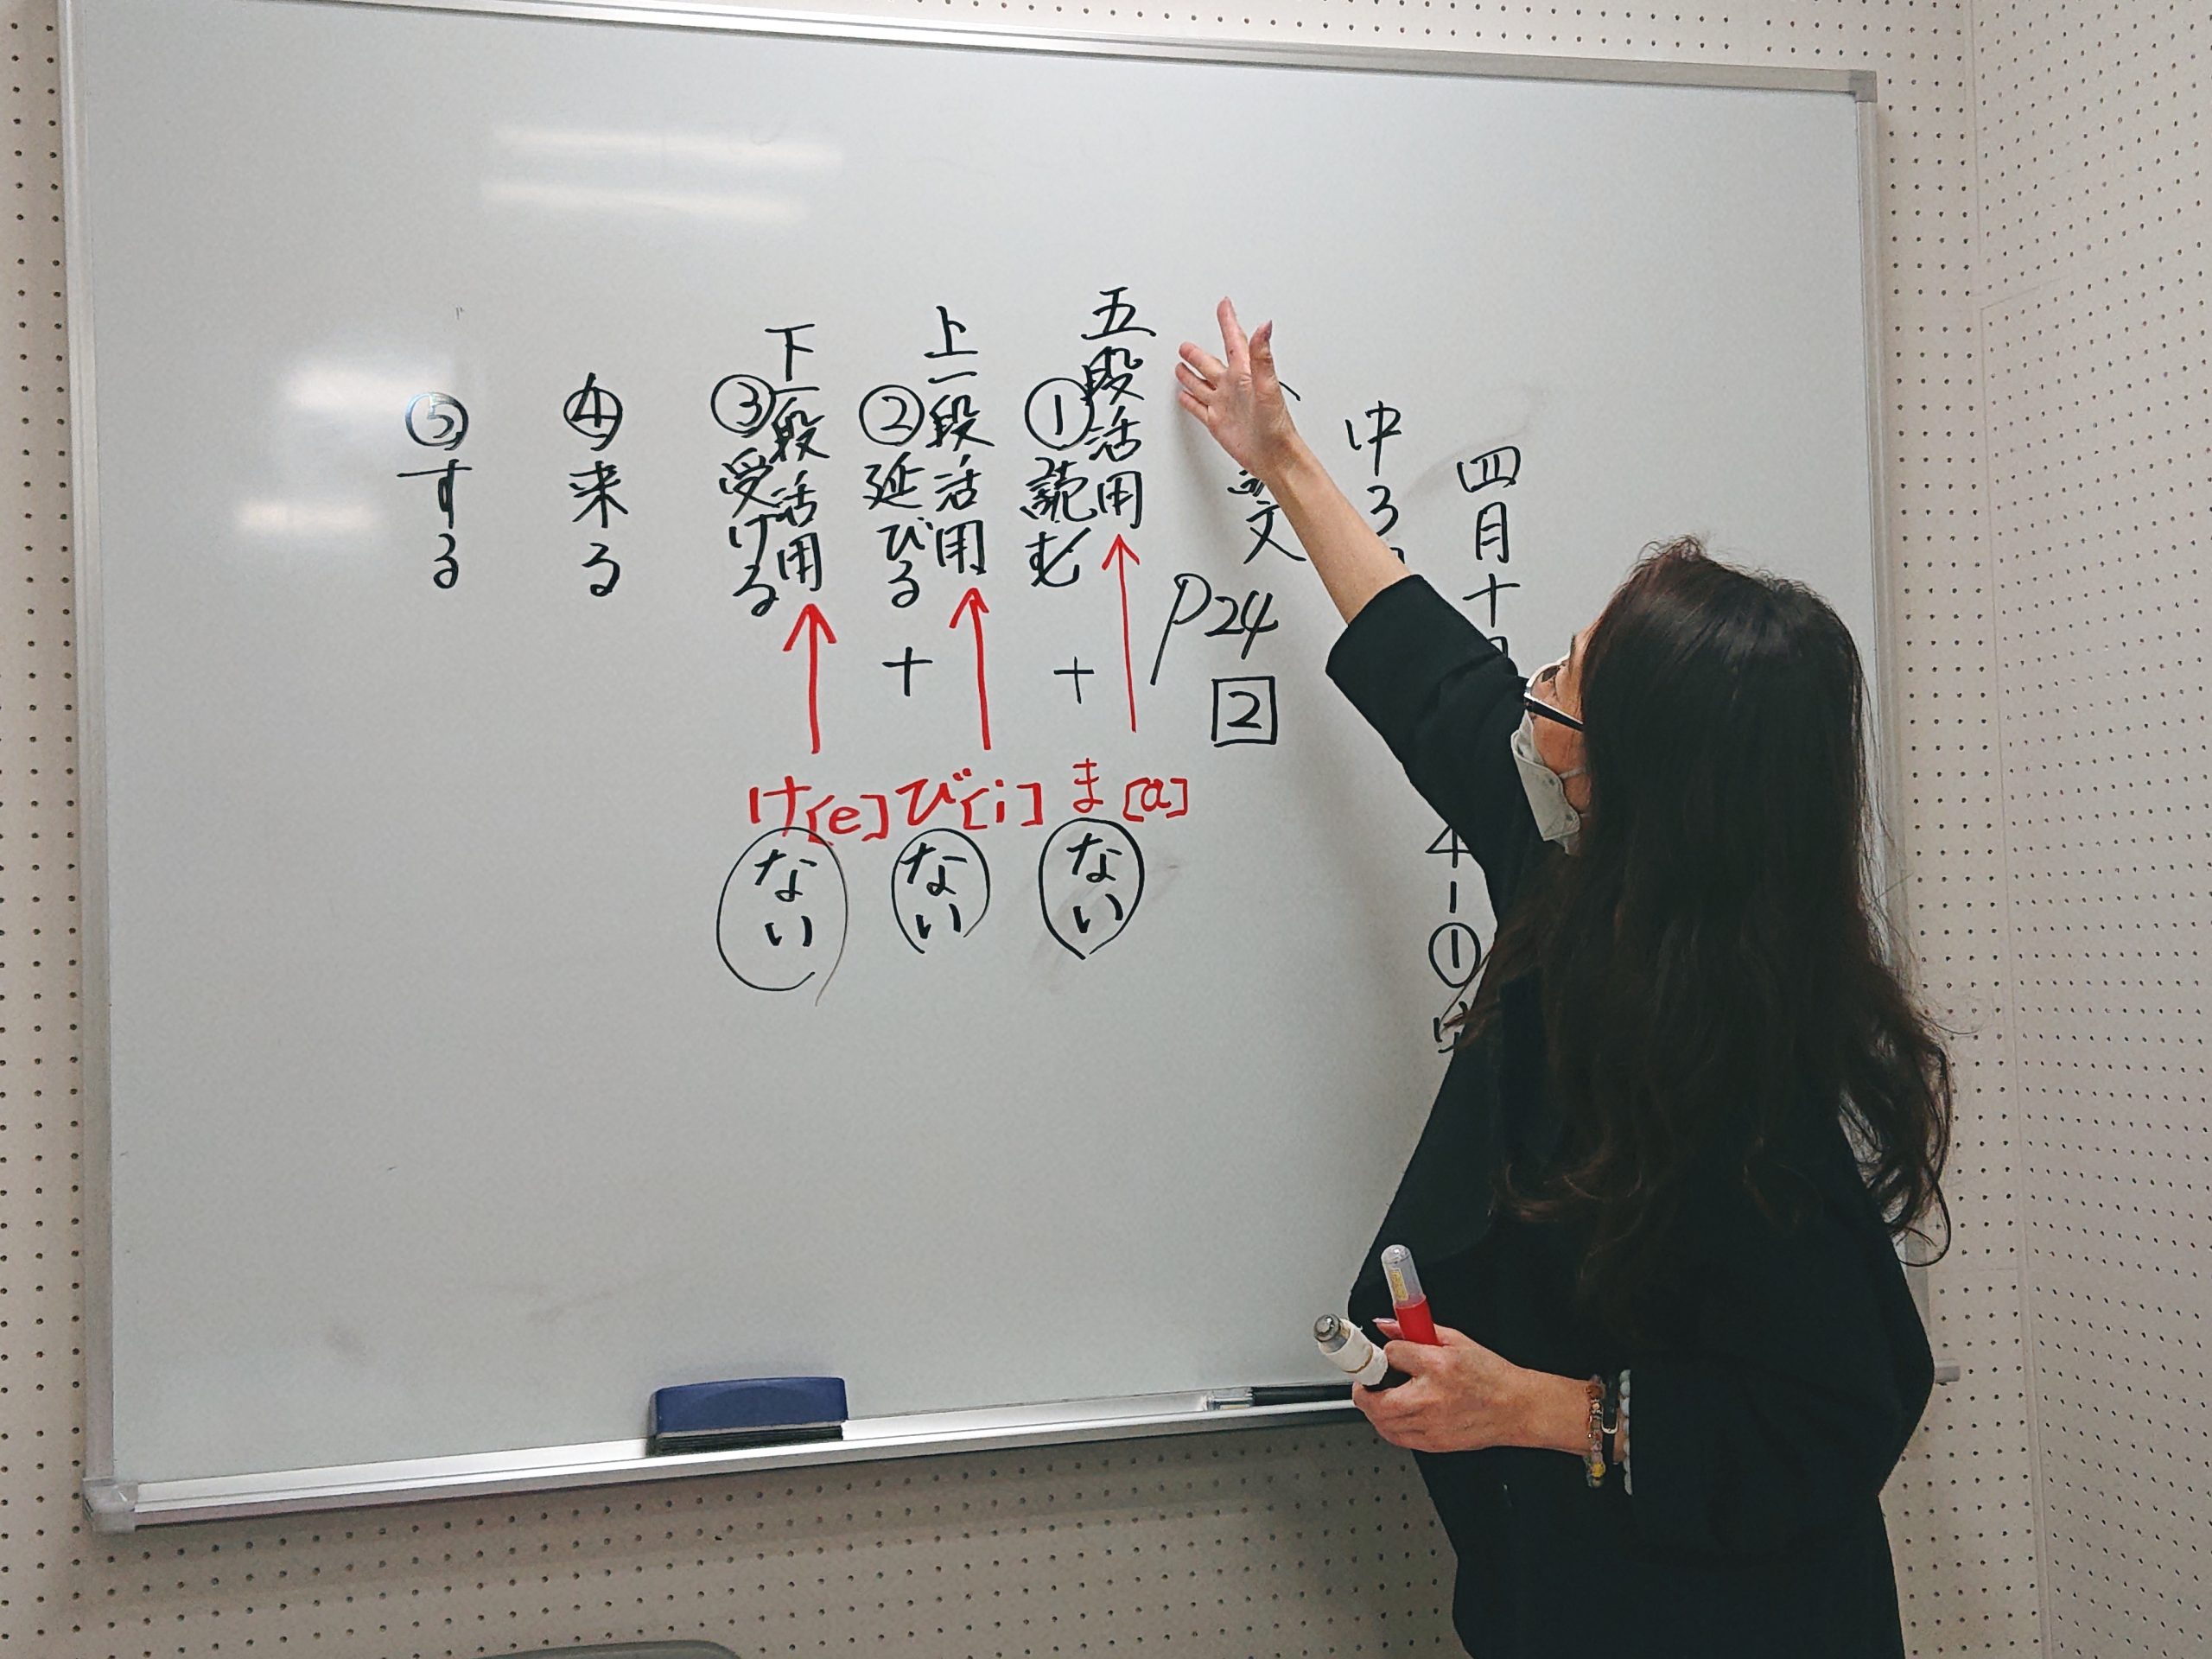 四月十
4-①
中3
文
P24
2
五段活用
①読む
+
ま[a]
ない
上一段活用
②延びる
+
び[i]
ない
下一段活用
③受ける
け[e]
ない
④来る
⑤する